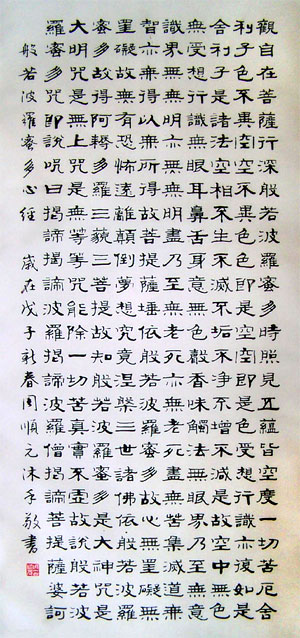 觀自在菩薩行深般若波羅蜜多時照見五蘊皆空度一切苦厄舍
利子色不異空空不異色色即是空空即是色受想行識亦復如是
舍利子是諸法空相不生不滅不垢不淨不增不減是故空中無色
無受想行識無眼耳鼻舌身意無色聲香味觸法無眼界乃至無意
識界無無明亦無無明盡乃至無老死亦無老死盡無苦集滅道無
智亦無得以無所得故菩提薩埵依般若波羅蜜多故心無罣礙無
罣礙故無有恐怖遠離顛倒夢想究竟涅槃三世諸佛依般若波羅
蜜多故得阿耨多羅三藐三菩提故知般若波羅蜜多是大神咒是
大明咒是無上咒是無等等咒能除一切苦真實不虛故說般若波
羅蜜多咒即說咒曰揭諦揭諦波羅揭諦波羅僧揭諦菩提薩婆訶
般若波羅蜜多心經 歲在戊子新春周順元沐手敬書